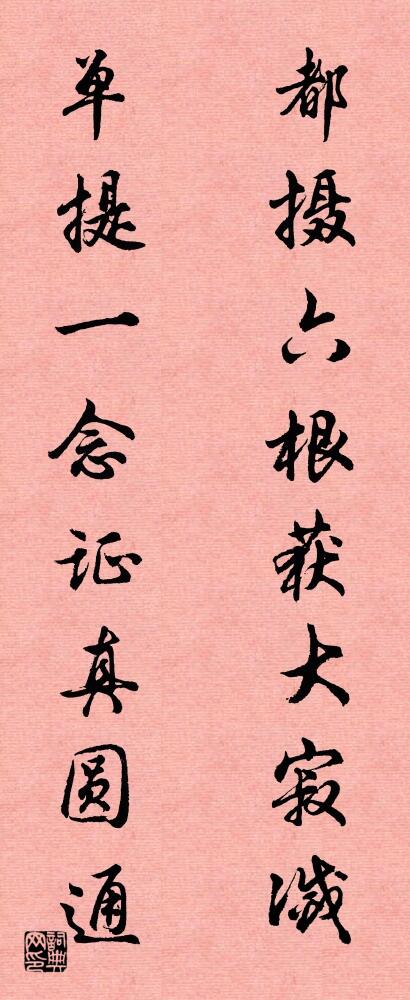 都摄六根获大寂滅
单提一念证真圆通
詞典网印